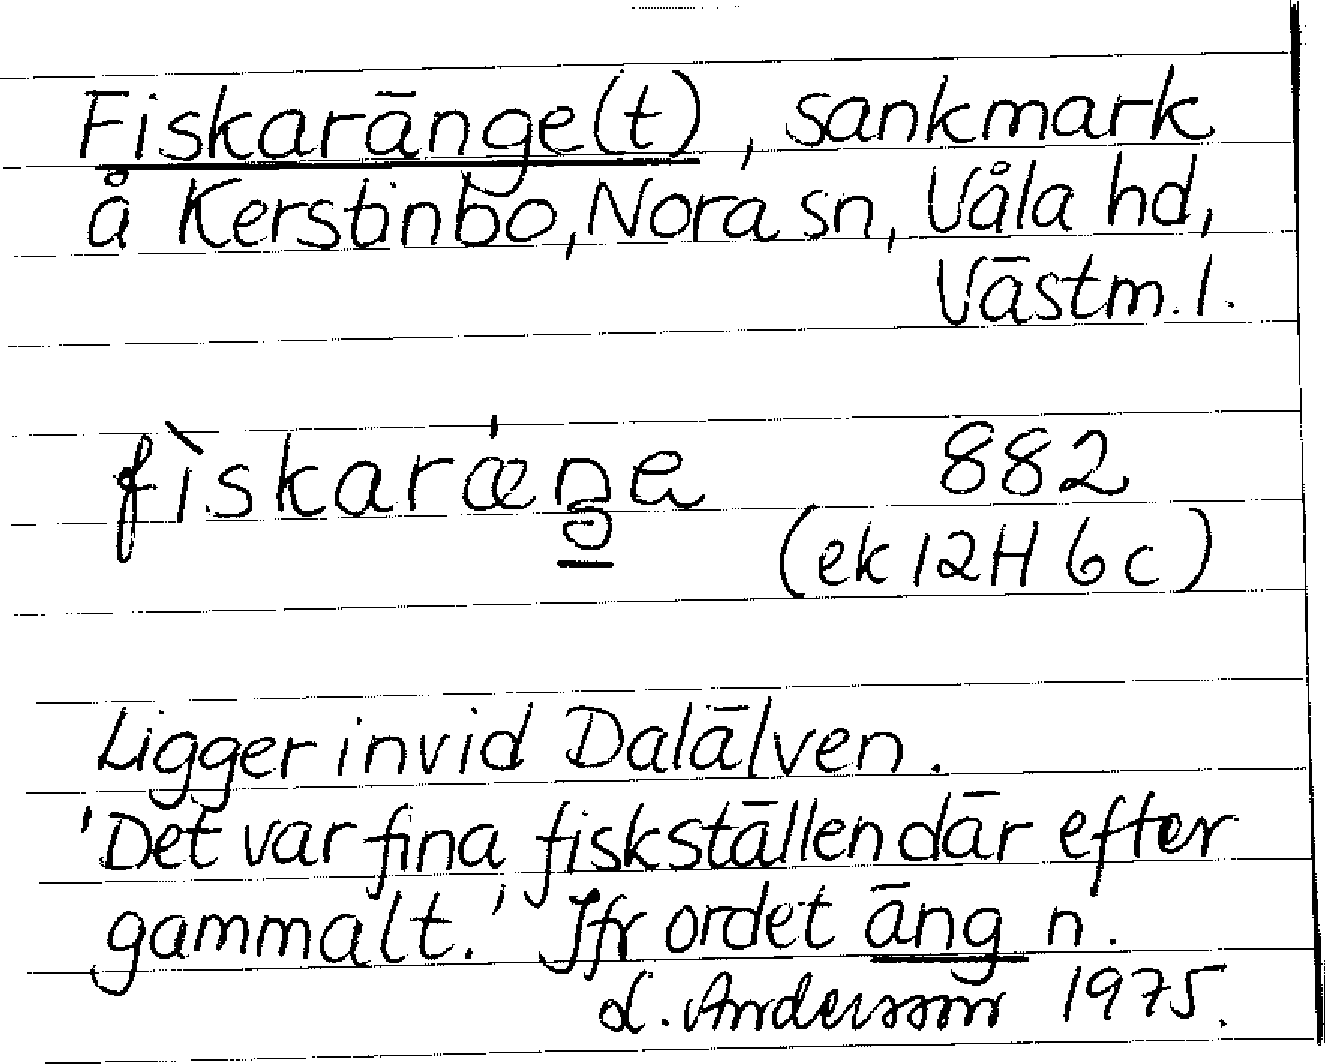 Fiskaränge(t), sankmark
å Kerstinbo, Nora sn, Våla hd,
Västm. l.
fìskarǽŋe 882
(ek 12H 6c)
Ligger invid Dalälven.
'Det var fina fiskställen där efter
gammalt.' Jfr ordet äng n.
L. Andersson 1975.